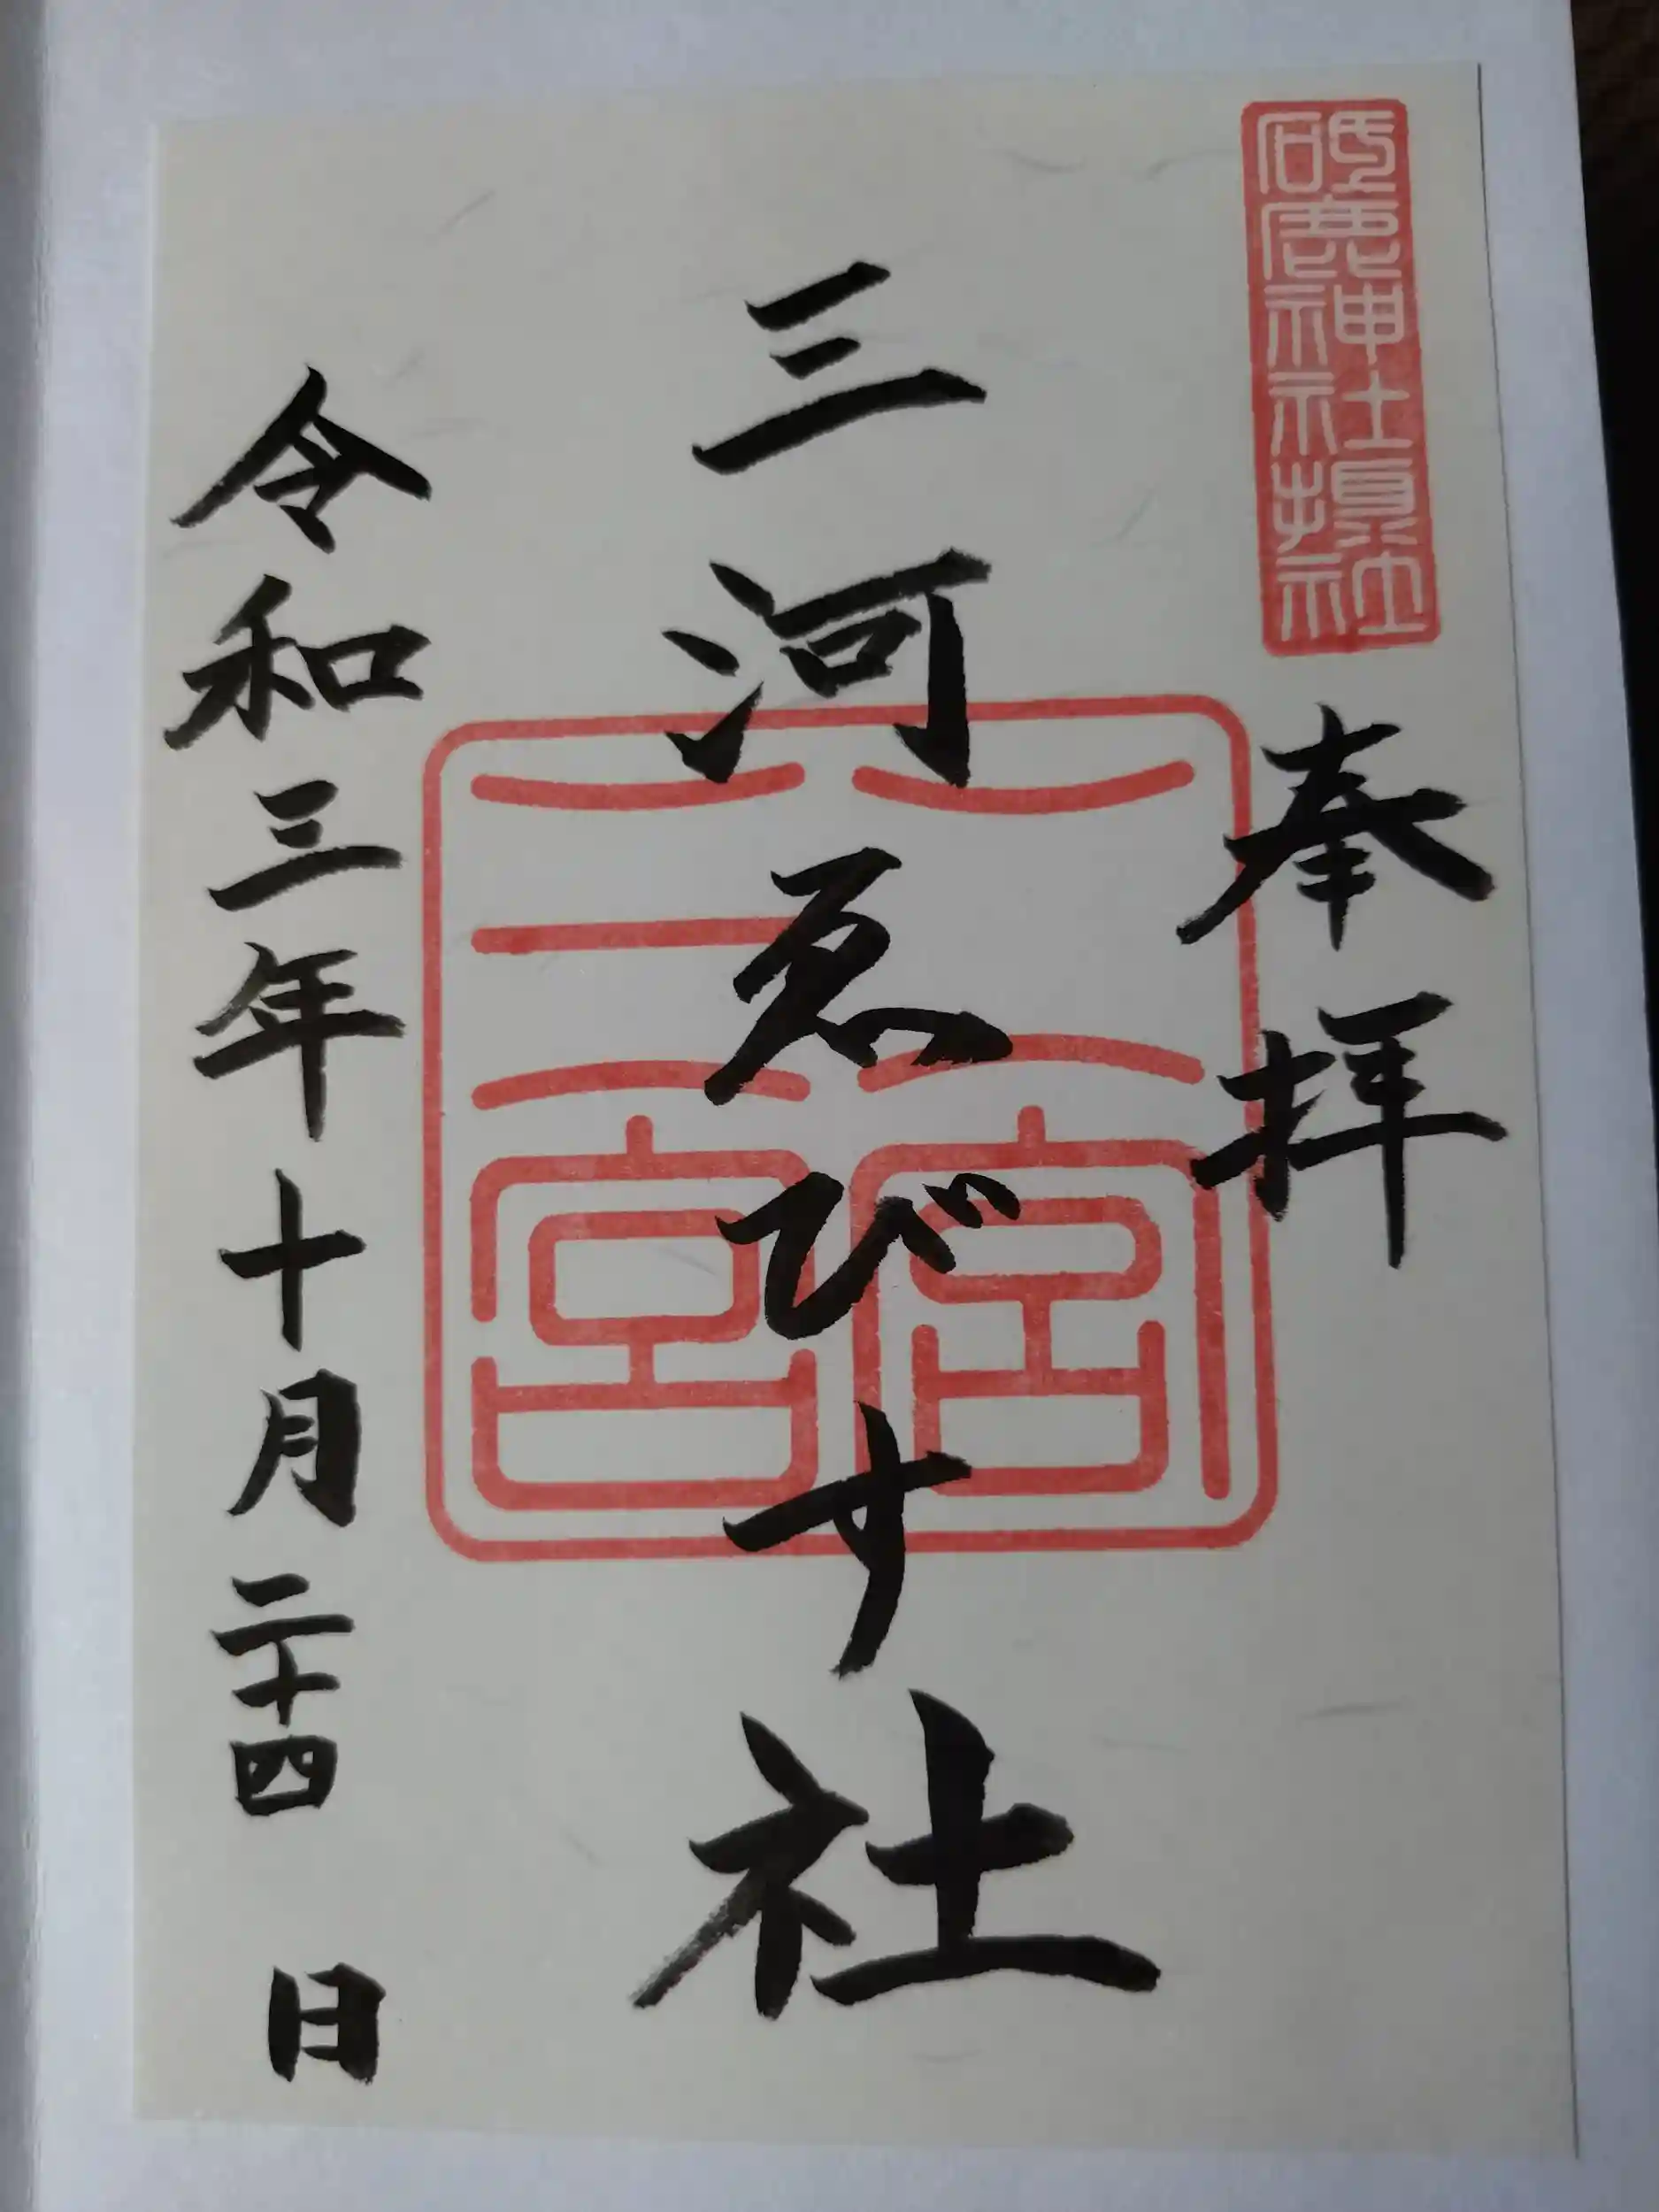 砥鹿神社境内社
奉拝
三河ゑびす社
三宮
三宮
令和三年十月二十四日